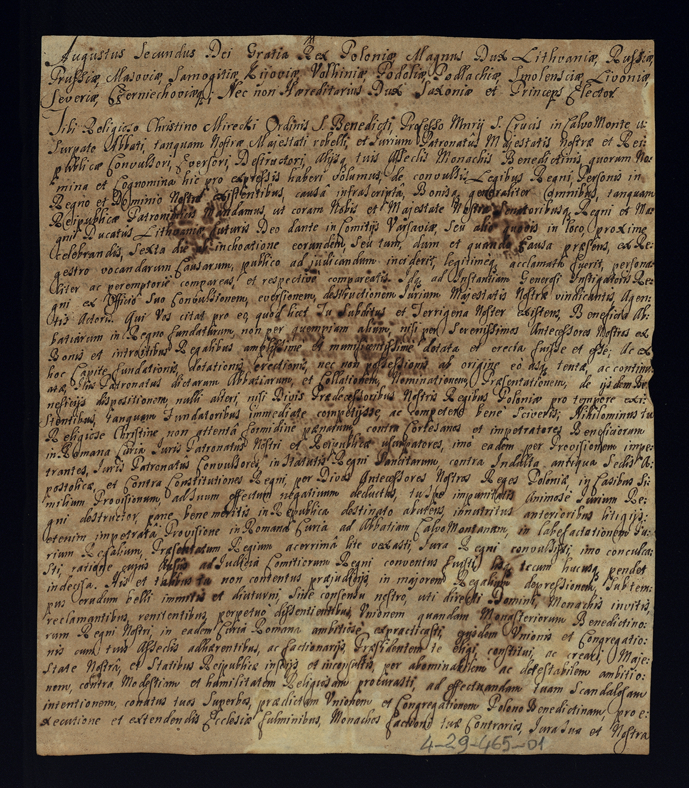 Augustus Secundus Dei Gratia Rex Poloniæ Magnus Dux Lithuaniæ, Russiæ,
Prussiæ, Masoviæ, Samogitiæ, Kijoviæ, Volhiniæ Podoliæ, Podlachiæ, Smolensciæ, Livoniæ,
Severiæ, Czerniechoviæq; Nec non Hæreditarius Dux Saxoniæ et Princeps Elector
Tibi Religioso Christino Mirecki Ordinis S. Benedicti, Professo Mnrij S. Crucis in Calvo Monte
surpato Abbati, tanquam Nostræ Majestati rebelli, et Jurium Patronatus Majestatis Nostræ et Rei
publicæ Convulsori, Eversori, Destructori, Alijsq tuis Asseclis Monachis Benedictinis, quorum No
mina et Cognomina hic pro expressis haberi volumus, de convulsis Legibus Regni, Personis in
Regno et Dominio existentibus, causa infrascripta, Bonisq generaliter omnibus, tanquam
Reipublicæ Mandamus, ut coram Nobis et Majestate Nostra Senatoribusq Regni et Ma
gni Ducatus Lithuaniæ futuris Deo dante in Comitijs Varsaviæ, seu alio in loco proxime
celebrandis, Sexta die inchoatione eorundem, seu tum, dum et quando causa præsens, ex Re
gestro vocandarum Causarum, publico ad judicandum inciderit, legitimeq acclamata fuerit, persona
liter ac peremptorie compareas, et respective compareatis. Idq ad Instantiam Generosi Instigatoris Re
gni ex Officio Suo Convulsionem, eversionem, destructionem Jurium Majestatis Nostræ vindicantis, Agen
tis Actoris. Qui Vos citat pro eo, quod licet Tu Subditus et Terrigena Noster existens, Beneficia Ab
batiarum in Regno fundatarum, non per quempiam alium, nisi per Serenissimos Antecessores Nostros ex
Bonis et introitibus Regalibus amplissime et munificentissime dotata et erecta fuisse et esse; Ac ex
hoc Capite fundationis, dotationis, erectionis, nec non possessionis ab origine eo dsq tentæ, ac contin
atæ, Jus Patronatus dictarum Abbatiarum, et Collationem, Nominationem, Præsentationem, de ijsdem Be
neficijs dispositionem, nulli alteri, nisi Divis Prædecessoribus Nostris Regibus Poloniæ pro tempore exi
stentibus, tanquam Fundatoribus immediate competijsse, ac competere bene sciveris; Nihilominus tu
Religiose Christine non attenta formidine pænarum, contra Cortesanos et impetratores Beneficiorum
in Romana Curia Juris Patronatus Nostri et Reipublicæ usurpatores, imo eadem per Provisionem impe
trantes, Juris Patronatus Convulsores, in Statutis Regni Sancitarum, contra Indulta antiqua Sedis A
postolicæ, et Contra Constitutiones Regni, per Divos Antecessores Nostros Reges Poloniæ, in Casibus Si
milium Provisionum, ad suum effectum negatinum deductas, tu spe impunitatis animose Jurium Re
gni destructor, pane bene meritis in Republica destinato abutens, innatritus anterioribus litigijs.
etenim impetrata Provisione in Romana Curia ad Abbatiam Calvo Montanam, in labefactationem Ju
rium Regalium, Præsentatum Regium acerrima lite vexasti, Jura Regni convulsisti, imo conculca
sti, ratione cujus ad Judicia Comitiorum Regni conventus fuisti tecum hucusq pendet
indecisa. His et talibus non contentus præjudicijs, in majorem Regalium depressionem, Sub tem
pus eradum belli immitis et diuturni, Sine consensu nostro, uti directi Domini, Monachis invitis,
reclamantibus, renitentibus, perpetuo dissentientibus Unionem quandam Monasteriorum Benedictino
rum Regni Nostri, in eadem Curia Romana ambitiose expracticasti, ejusdem Unionis et Congregatio
nis cum tuis Asseclis adhærentibus, ac factionarijs, Præsidentem te eligi, constitui, ac creari, Maje
state Nostra, et Statibus Reipublicæ inscijs et inconsultis, per abominabilem ac detestabilem ambitio
nem, contra Modestiam et humilitatem Religiosam procurasti, ad effectuandam tuam Scandalosam
intentionem, conatus tuos Superbos, prædictam Unionem et Congregationem Polono Benedictinam, pro e
xecutione et extendendis Ecclesiæ fulminibus, Monachos factioni tuæ Contrarios, Jura Sua et Nostra
4-29-465-01